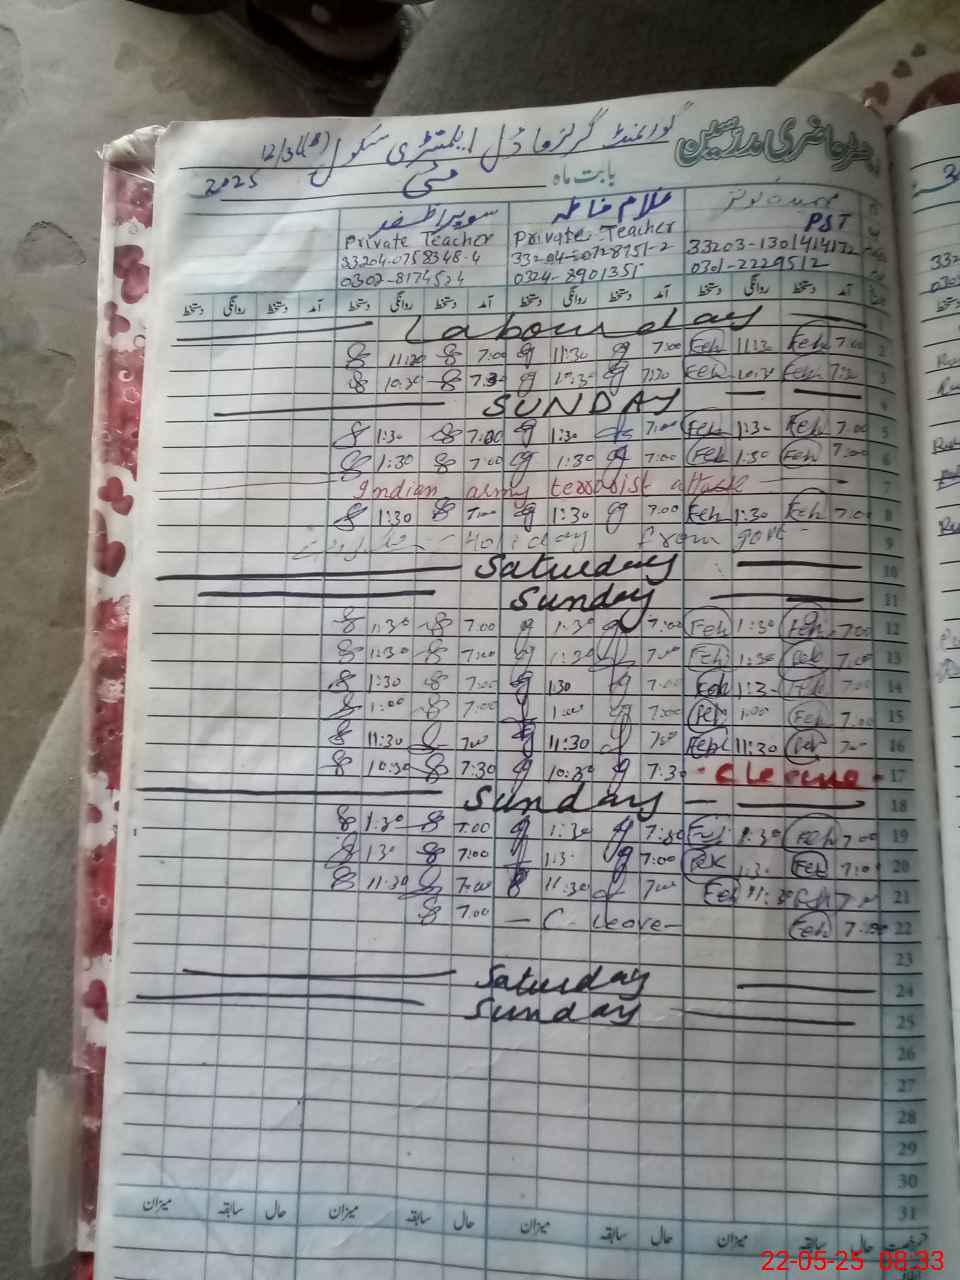 رجسٹر حاضری مدرسین گورنمنٹ گرلز ماڈل ایلمنٹری سکول 12/3L(B)
بابت ماہ مئی 2025
غلام فاطمہ سویرا ظفر
PST Private Teacher Private Teacher
33203-1301414172 33204-0728751-2 33204-0758348-4
0301-2229512 0324-8901351 0302-8174524
آمد دستخط روانگی دستخط آمد دستخط روانگی دستخط آمد دستخط روانگی دستخط آمد دستخط روانگی دستخط
Labour day
2 7:00 Feh 11:30 Feh 7:00 11:30 7:00 11:30
3 7:30 Feh 10:30 Feh 7:30 10:30 7:30 10:30
4 SUNDAY
5 7:00 Feh 1:30 Feh 7:00 1:30 7:00 1:30
6 7:00 Feh 1:30 Feh 7:00 1:30 7:00 1:30
7 Indian army terrorist attack
8 7:00 Feh 1:30 Feh 7:00 1:30 7:00 1:30
9 Holiday from govt
10 Saturday
11 Sunday
12 7:00 Feh 1:30 Feh 7:00 1:30 7:00 1:30
13 7:00 Feh 1:30 Feh 7:00 1:30 7:00 1:30
14 7:00 Feh 1:30 Feh 7:00 1:30 7:00 1:30
15 7:00 Feh 1:00 Feh 7:00 1:00 7:00 1:00
16 7:00 Feh 11:30 Feh 7:00 11:30 7:00 11:30
17 C leave 7:30 10:30 7:30 10:30
18 Sunday
19 7:00 Feh 1:30 Feh 7:00 1:30 7:00 1:30
20 7:00 Feh 1:30 Feh 7:00 1:30 7:00 1:30
21 7:00 Feh 11:30 Feh 7:00 11:30 7:00 11:30
22 7:00 Feh C-leave 7:00
23
24 Saturday
25 Sunday
26
27
28
29
30
31
حال سابقہ میزان حال سابقہ میزان حال سابقہ میزان حال سابقہ میزان
22-05-25 08:33